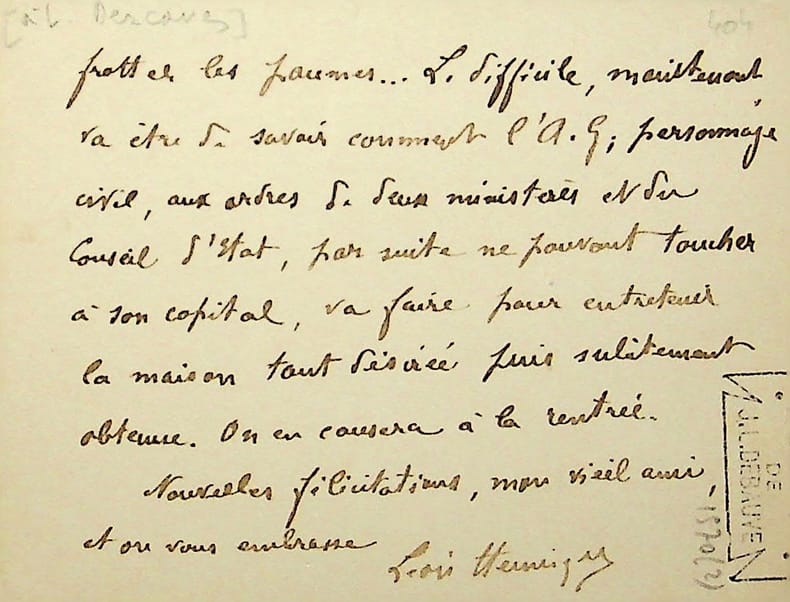 [à L. Descaves]
404
frotter les paumes... Le difficile, maintenant,
va être de savoir comment l'A.G; personnage
civil, aux ordres de deux ministères et du
Conseil d'Etat, par suite ne pouvant toucher
à son capital, va faire pour entretenir
la maison tant désirée puis subitement
obtenue. On en causera à la rentrée.
Nouvelles félicitations, mon vieil ami,
et on vous embrasse
Léon Hennique
DE
J.L. DEBAUVE
1570(2)